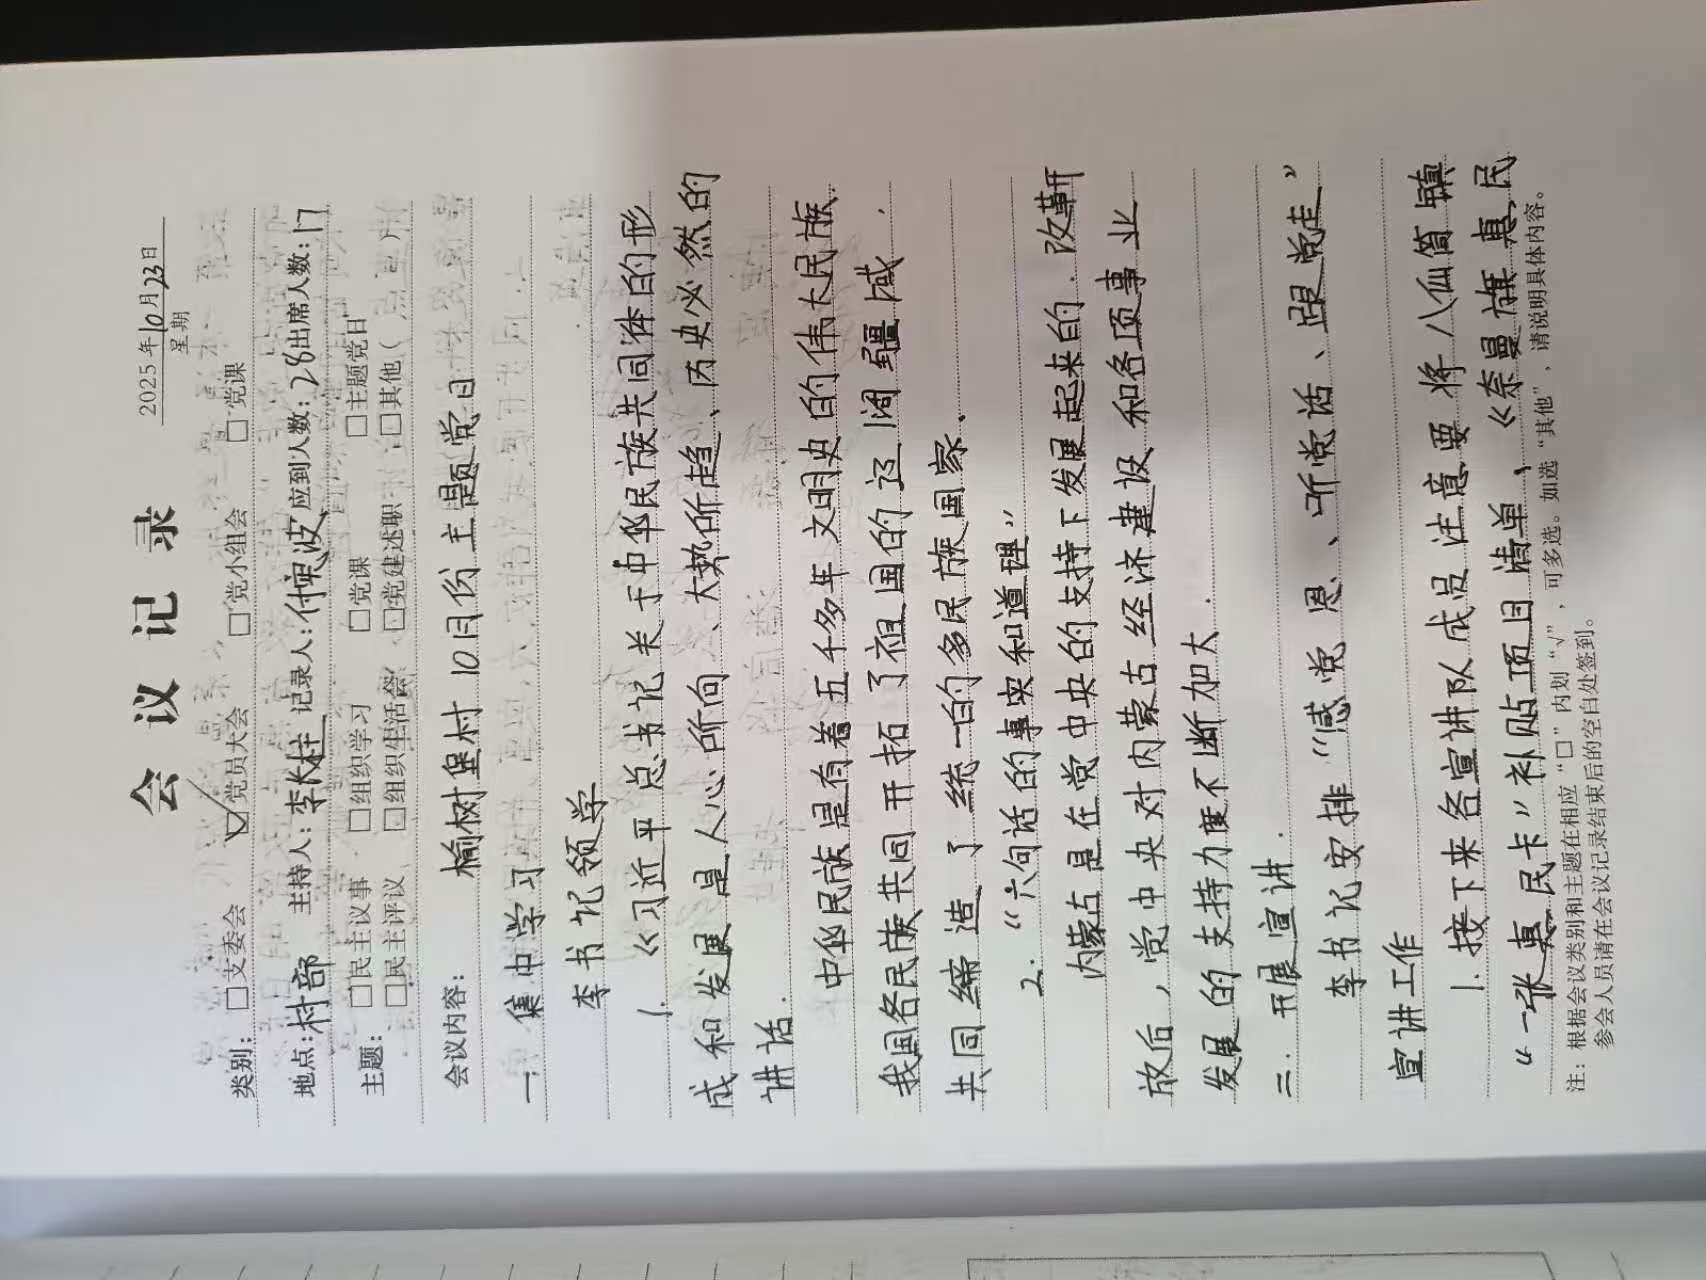 会 议 记 录
2025年10月23日
星期
类别： □支委会 ☑党员大会 □党小组会 □党课
地点：村部 主持人：李桂 记录人：付 波 应到人数：28 出席人数：17
主题： □民主议事 □组织学习 □党课 □主题党日
□民主评议 □组织生活会 □党建述职 □其他（ ）
会议内容： 榆树堡村10月份主题党日
一、集中学习
李书记领学
1.《习近平总书记关于中华民族共同体的形
成和发展是人心所向、大势所趋、历史必然的
讲话.
中华民族是有着五千多年文明史的伟大民族.
我国各民族共同开拓了祖国的辽阔疆域.
共同缔造了统一的多民族国家、
2. “六句话的事实和道理”
内蒙古是在党中央的支持下发展起来的.改革开
放后,党中央对内蒙古经济建设和各项事业
发展的支持力度不断加大.
二. 开展宣讲.
李书记安排“感党恩、听党话、跟党走”
宣讲工作
1.接下来各宣讲队成员注意要将八仙筒镇
“一张惠民卡”补贴项目清单、《奈曼旗惠民
注：根据会议类别和主题在相应“□”内划“√”，可多选。如选“其他”，请说明具体内容。
参会人员请在会议记录结束后的空白处签到。